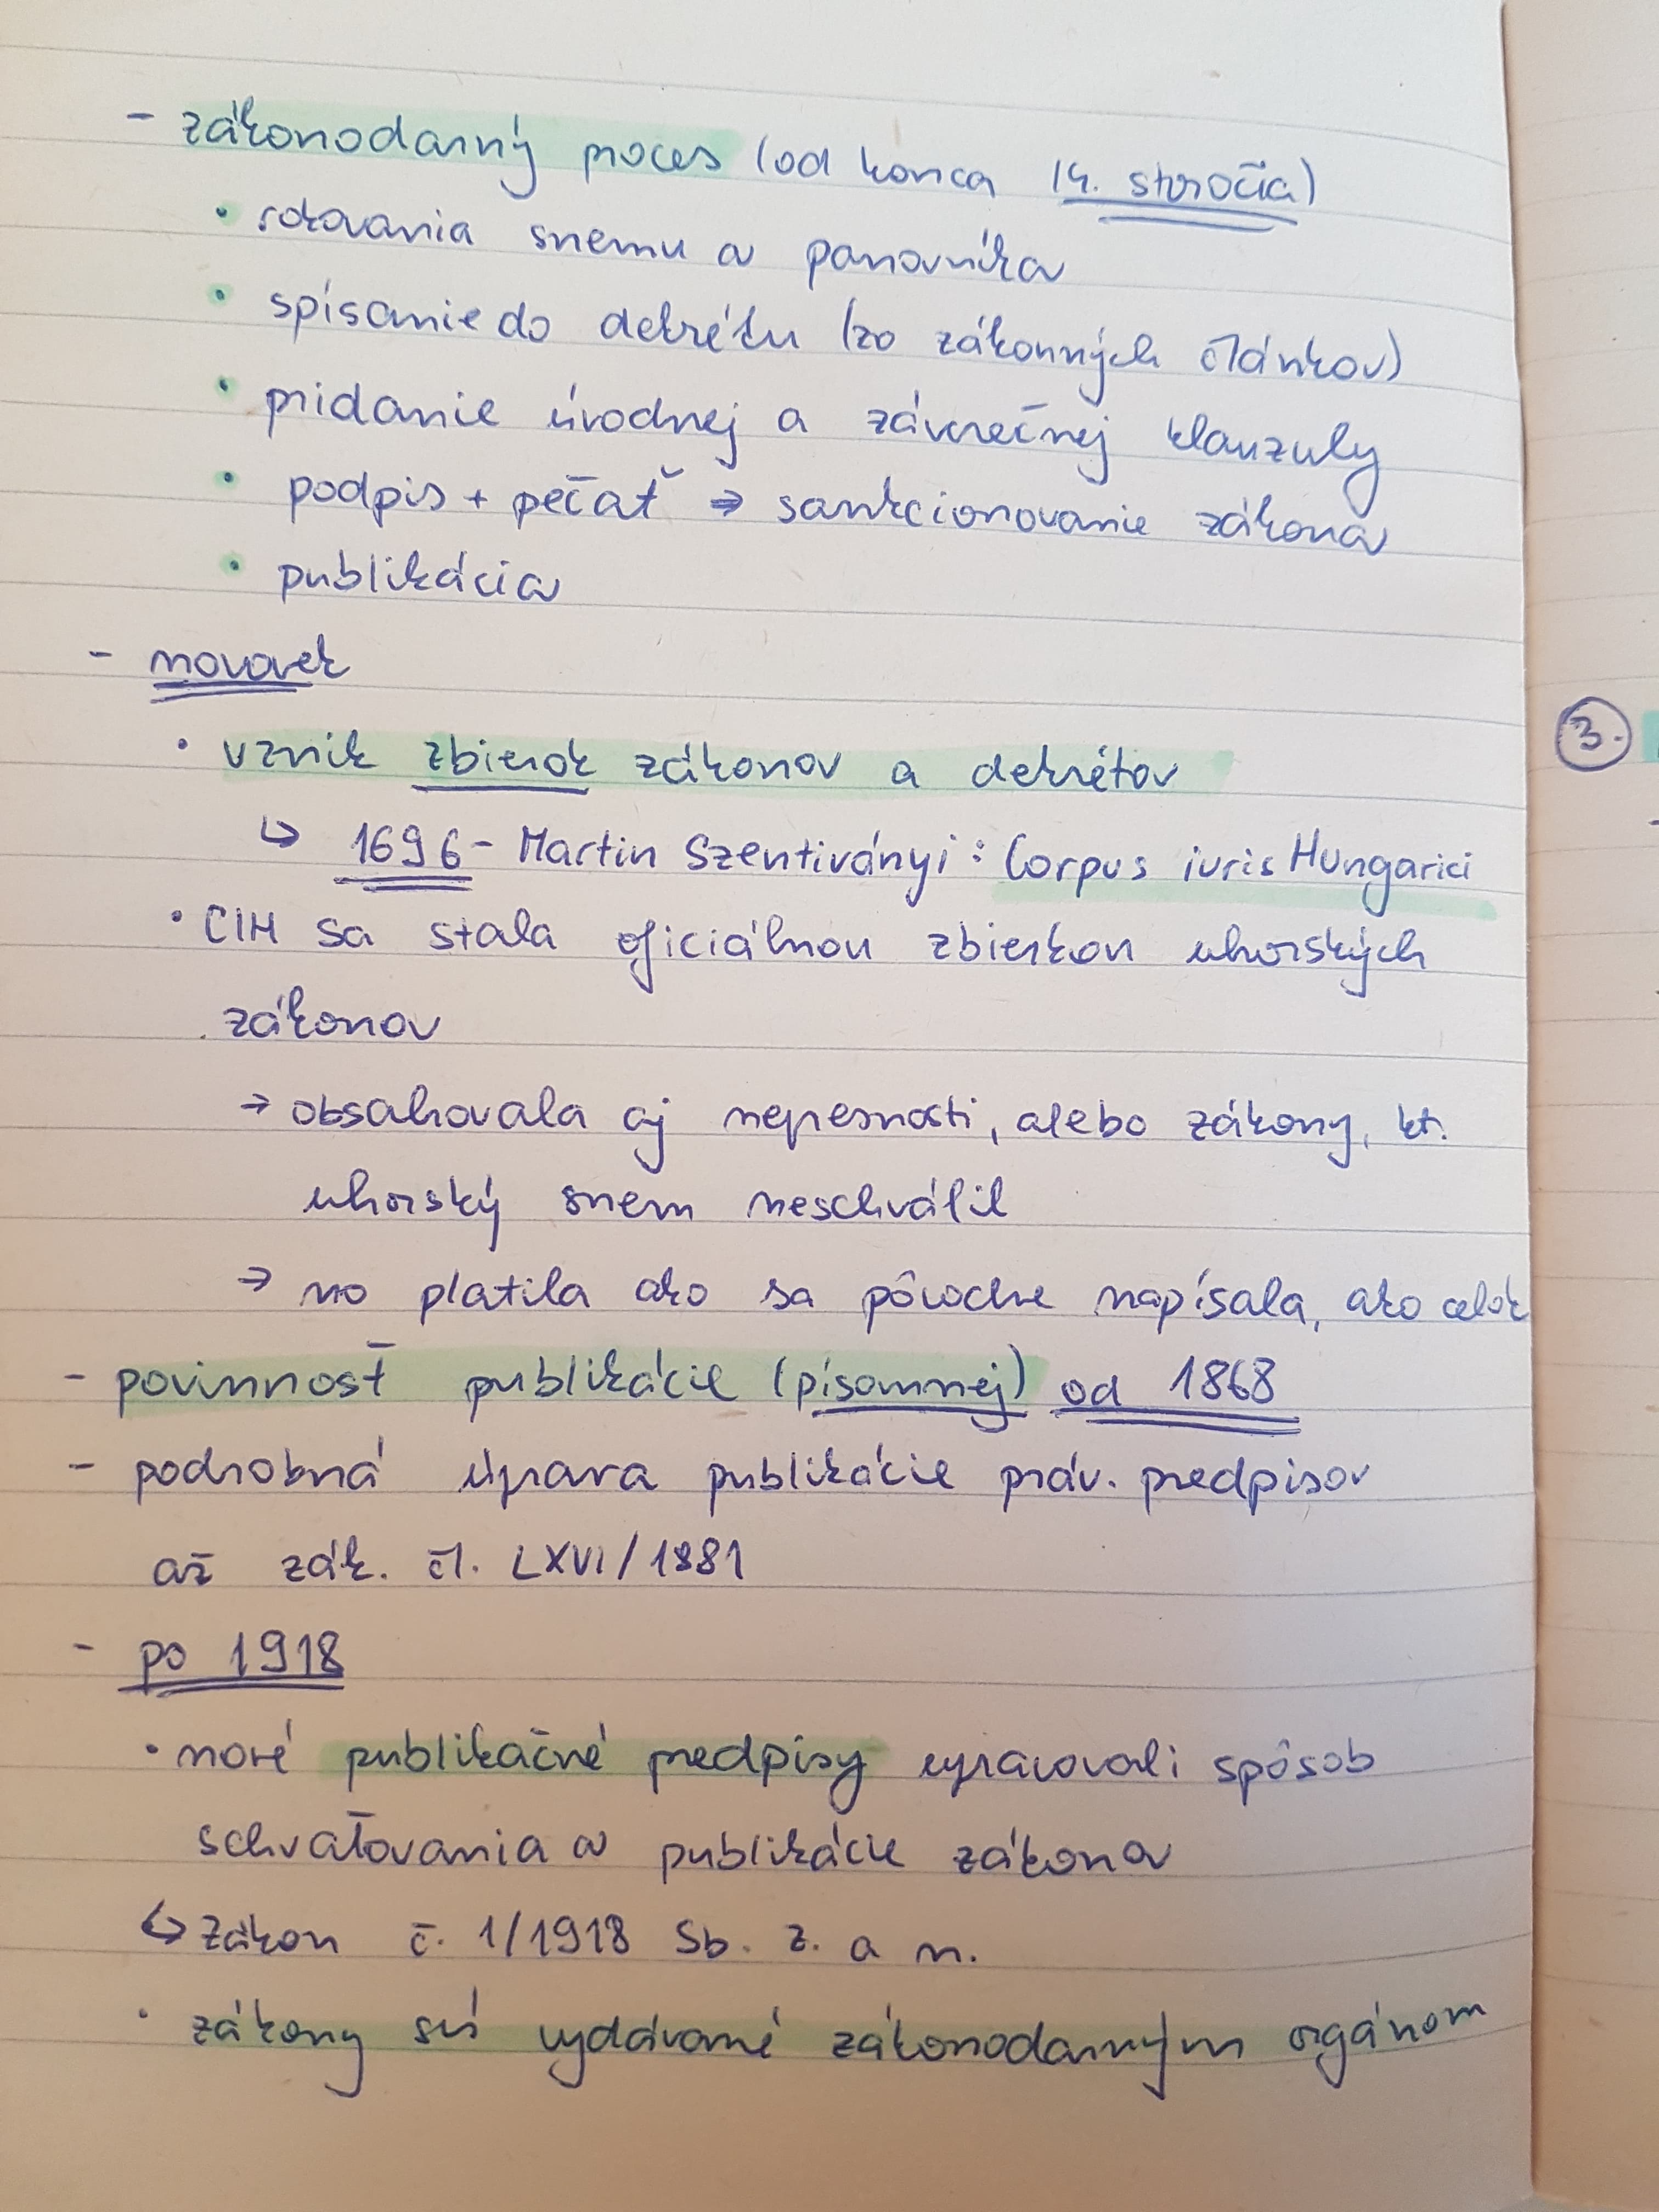 - zákonodarný proces (od konca 14. storočia)
• rokovania snemu a panovníka
• spísanie do dekrétu (zo zákonných článkov)
• pridanie úvodnej a záverečnej klauzuly
• podpis + pečať ⇒ sankcionovanie zákona
• publikácia
- novovek
• vznik zbierok zákonov a dekrétov
↳ 1696 - Martin Szentiványi: Corpus iuris Hungarici
• CIH sa stala oficiálnou zbierkou uhorských
zákonov
→ obsahovala aj nepresnosti, alebo zákony, kt.
uhorský snem neschválil
→ no platila ako sa pôvodne napísala, ako celok
- povinnosť publikácie (písomnej) od 1868
- podrobná úprava publikácie práv. predpisov
až zák. čl. LXVI/1881
- po 1918
• nové publikačné predpisy upracovali spôsob
schvaľovania a publikácie zákona
↳ Zákon č. 1/1918 Sb. z. a n.
• zákony sú vydávané zákonodarným orgánom
3.